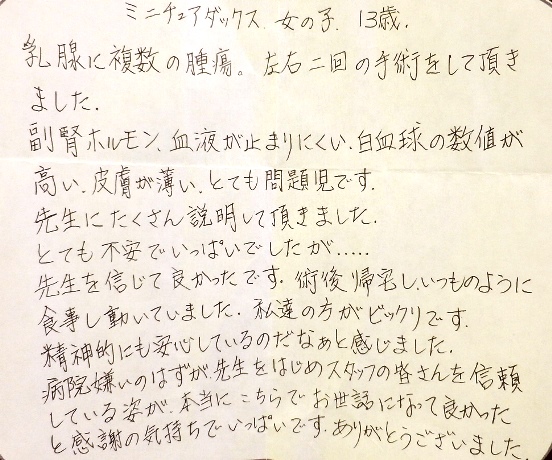 ミニチュアダックス、女の子、13歳.
乳腺に複数の腫瘍。左右二回の手術をして頂き
ました.
副腎ホルモン、血液が止まりにくい、白血球の数値が
高い、皮膚が薄い、とても問題児です.
先生にたくさん説明して頂きました.
とても不安でいっぱいでしたが.....
先生を信じて良かったです. 術後帰宅し、いつものように
食事し動いていました. 私達の方がビックリです.
精神的にも安心しているのだなぁと感じました.
病院嫌いのはずが、先生をはじめスタッフの皆さんを信頼
している姿が、本当にこちらでお世話になって良かった
と感謝の気持ちでいっぱいです. ありがとうございました.